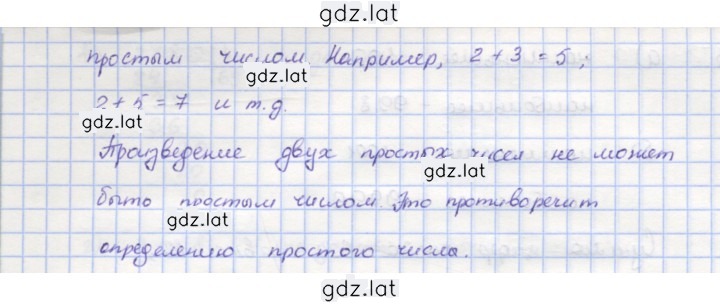 gdz.lat
простым числом. Например, 2 + 3 = 5;
gdz.lat
2 + 5 = 7 и т.д.
gdz.lat
Произведение двух простых чисел не может
gdz.lat
быть простым числом. Это противоречит
gdz.lat
определению простого числа.
gdz.lat